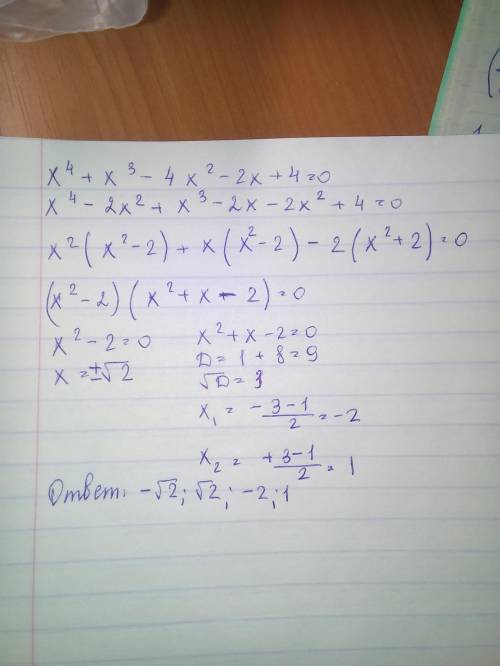 x⁴ + x³ - 4x² - 2x + 4 = 0
x⁴ - 2x² + x³ - 2x - 2x² + 4 = 0
x²(x² - 2) + x(x² - 2) - 2(x² + 2) = 0
(x² - 2)(x² + x - 2) = 0
x² - 2 = 0
x = ±√2
x² + x - 2 = 0
D = 1 + 8 = 9
√D = 3
x₁ = (-3-1)/2 = -2
x₂ = (+3-1)/2 = 1
Ответ: -√2; √2; -2; 1